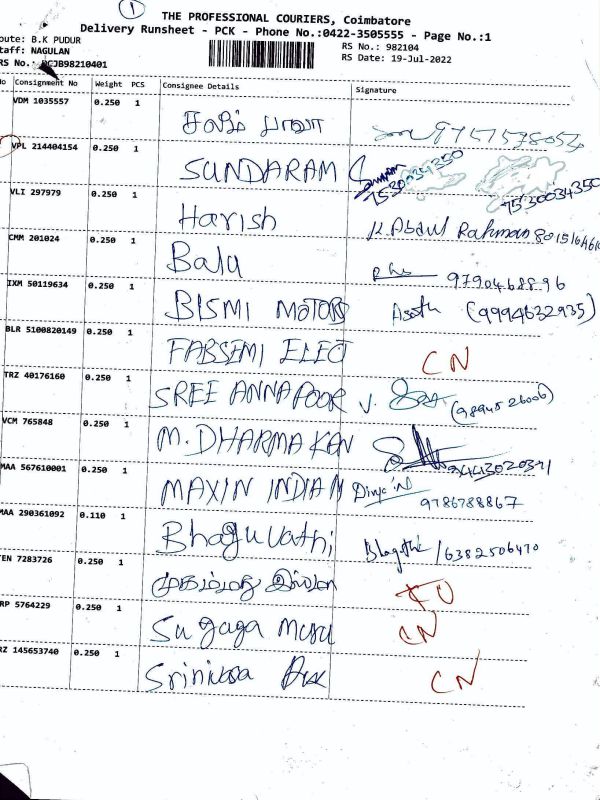 1
THE PROFESSIONAL COURIERS, Coimbatore
Delivery Runsheet - PCK - Phone No.:0422-3505555 - Page No.:1
oute: B.K PUDUR RS No.: 982104
taff: NAGULAN RS Date: 19-Jul-2022
RS No.: PCJB98210401
No Consignment No Weight PCS Consignee Details Signature
VDM 1035557 0.250 1
VPL 214404154 0.250 1 SUNDARAM 7530034350 7530034350
VLI 297979 0.250 1 Harish K. Abdul Rahman
CMM 201024 0.250 1 Balu 9790468896
IXM 50119634 0.250 1 BISMI MOTORS (9994632935)
BLR 5100820149 0.250 1 FABSEMI ELECT CN
TRZ 40176160 0.250 1 SREE ANNAPOOR V.
VCM 765848 0.250 1 M. DHARMA KAN
MAA 567610001 0.250 1 MAXIN INDIAN 9786788867
MAA 290361092 0.110 1 Bhaguvathi /6382506470
TEN 7283726 0.250 1 முகம்மது
RP 5764229 0.250 1 CN
RZ 145653740 0.250 1 Srinivasa CN